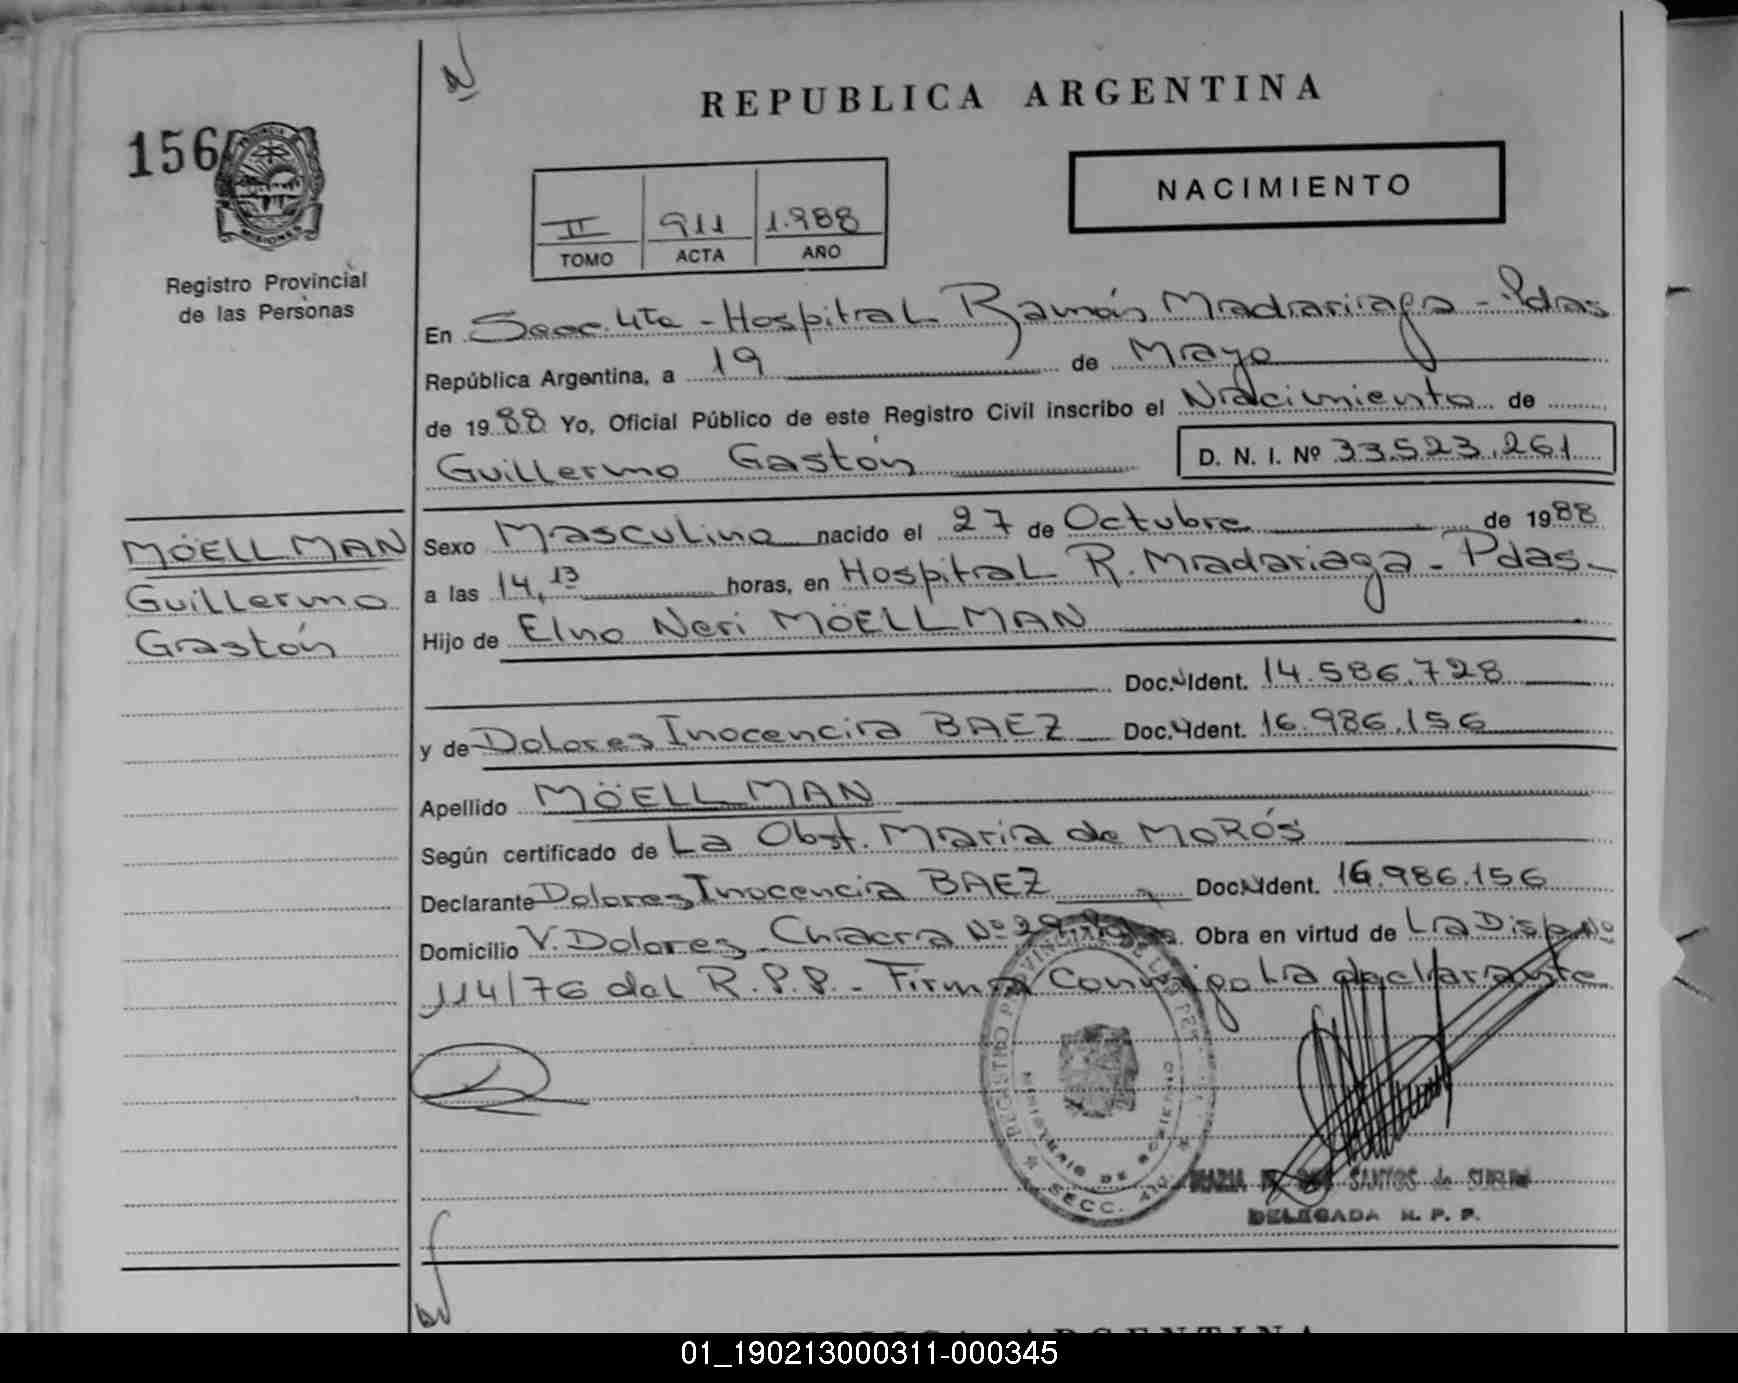 REPUBLICA ARGENTINA
156
PROVINCIA
MISIONES
Registro Provincial
de las Personas
NACIMIENTO
II 911 1.988
TOMO ACTA AÑO
En Secc. 4ta - Hospital Ramón Madariaga - Pdas
República Argentina, a 19 de Mayo
de 1988 Yo, Oficial Público de este Registro Civil inscribo el Nacimiento de
Guillermo Gastón D. N. I. Nº 33.523.261
MÖELLMAN
Guillermo
Gastón
Sexo Masculino nacido el 27 de Octubre de 1988
a las 14,13 horas, en Hospital R. Madariaga - Pdas -
Hijo de Elno Neri MÖELLMAN
Doc. Ident. 14.586.728
y de Dolores Inocencia BAEZ Doc. Ident. 16.986.156
Apellido MÖELLMAN
Según certificado de La Obst. Maria de MORÓS
Declarante Dolores Inocencia BAEZ Doc. Ident. 16.986.156
Domicilio V. Dolores - Chacra Nº Obra en virtud de La Disp. Nº
114/76 del R.P.P. - Firma Conmigo La declarante
REGISTRO PROVINCIAL DE LAS PERS
MINISTERIO DE GOBIERNO
SECC. 4ta.
MARIA SANTOS de
DELEGADA R. P. P.
REPUBLICA ARGENTINA
01_190213000311-000345